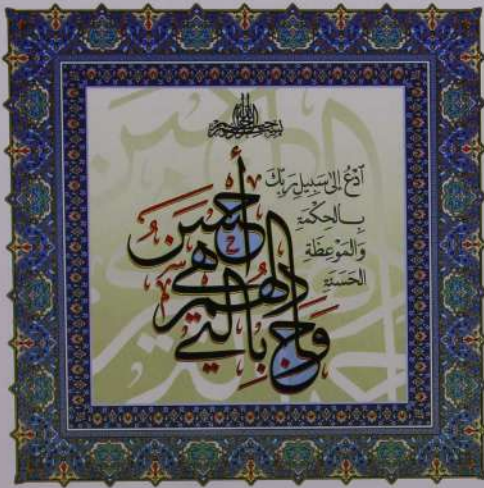 بسم الله الرحمن الرحيم
ٱدْعُ إِلَىٰ سَبِيلِ رَبِّكَ
بِالْحِكْمَةِ
وَالْمَوْعِظَةِ
الْحَسَنَةِ
وَجَادِلْهُمْ بِالَّتِي هِيَ أَحْسَنُ